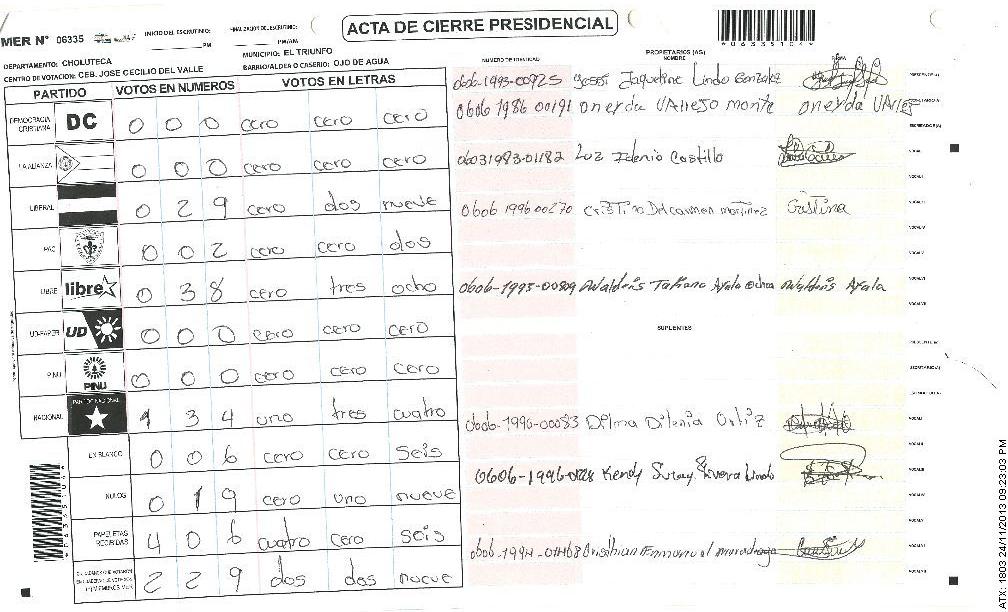 ACTA DE CIERRE PRESIDENCIAL
MER N° 06335
INICIO DEL ESCRUTINIO:
FINALIZACION DEL ESCRUTINIO:
PM
PM/AM
*06335104*
DEPARTAMENTO: CHOLUTECA
MUNICIPIO: EL TRIUNFO
CENTRO DE VOTACION: CEB. JOSE CECILIO DEL VALLE
BARRIO/ALDEA O CASERIO: OJO DE AGUA
PARTIDO VOTOS EN NUMEROS VOTOS EN LETRAS
DEMOCRACIA CRISTIANA DC 0 0 0 cero cero cero
LA ALIANZA 0 0 0 cero cero cero
LIBERAL 0 2 9 cero dos nueve
PAC 0 0 2 cero cero dos
LIBRE libre 0 3 8 cero tres ocho
UD-FAPER UD 0 0 0 cero cero cero
PINU PINU 0 0 0 cero cero cero
NACIONAL PARTIDO NACIONAL 1 3 4 uno tres cuatro
EN BLANCO 0 0 6 cero cero seis
NULOS 0 1 9 cero uno nueve
PAPELETAS RECIBIDAS 4 0 6 cuatro cero seis
2 2 9 dos dos nueve
NUMERO DE IDENTIDAD PROPIETARIOS (AS) NOMBRE FIRMA
0606-1993-00925 Jaqueline Lindo Gonzalez PRESIDENTE(A)
0606 1986 00191 onerda Vallejo monte onerda Vallejo
SECRETARIO(A)
0603 1983-01182 Luz Idenia Castillo VOCAL I
0606 1996 00270 Cristina Del carmen martinez Cristina
0606-1993-00809 Waldenis Tatiana Ayala Ochoa Waldenis Ayala
SUPLENTES
PRESIDENTE(A)
SECRETARIO(A)
0606-1990-00083 Dilma Dilenia Ortiz
0606-1996-0028 Kendy Suray Rivera Lindo
Cristhian Emmanuel
*06335104*
ATX: 1803 24/11/2013 09:23:03 PM